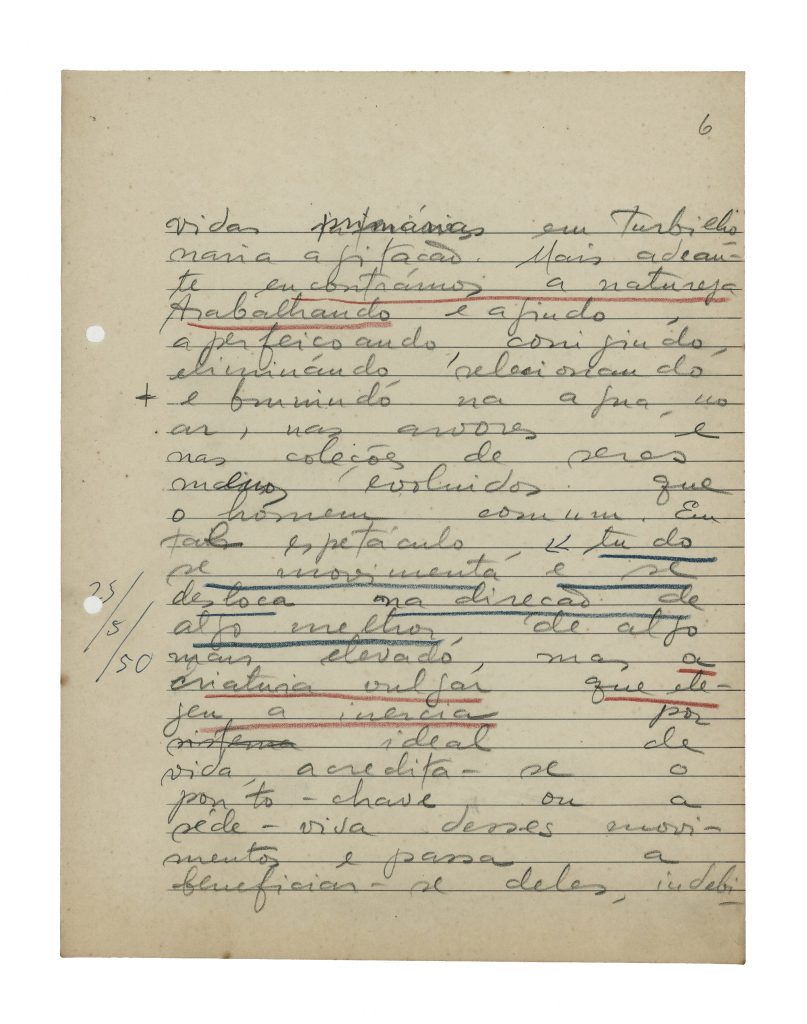 6
vidas primárias em turbilho
naria agitação. Mais adean-
te encontrámos a natureza
trabalhando e agindo,
aperfeicoando, corrigindo,
eliminando, selecionando
+ e brunindo na agua, no
ar, nas arvores e
nas coleções de seres
menos evoluidos que
o homem comum. Em
tal espetáculo, tudo
se movimenta e se
desloca na direcão de
25/5/50
algo melhor, de algo
mais elevado, mas a
criatura vulgar que ele-
geu a inercia por
sistema ideal de
vida, acredita-se o
ponto-chave ou a
séde-viva desses movi-
mentos e passa a
beneficiar-se deles, indebi-